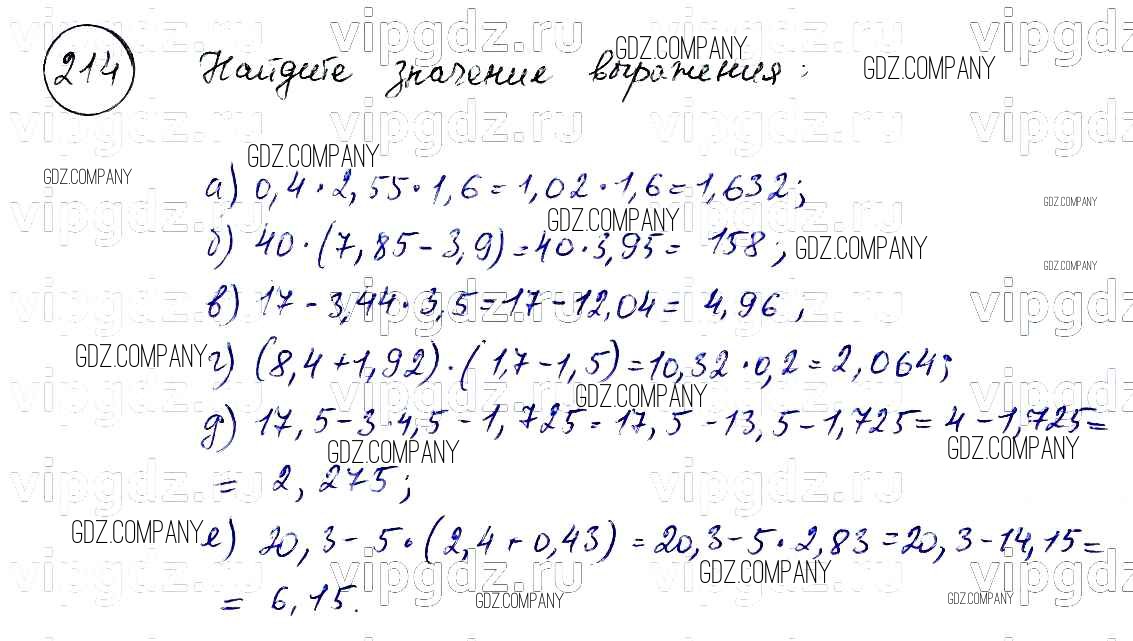 214 Найдите значение выражения:
а) 0,4 · 2,55 · 1,6 = 1,02 · 1,6 = 1,632;
б) 40 · (7,85 - 3,9) = 40 · 3,95 = 158;
в) 17 - 3,44 · 3,5 = 17 - 12,04 = 4,96;
г) (8,4 + 1,92) · (1,7 - 1,5) = 10,32 · 0,2 = 2,064;
д) 17,5 - 3 · 4,5 - 1,725 = 17,5 - 13,5 - 1,725 = 4 - 1,725 =
= 2,275;
е) 20,3 - 5 · (2,4 + 0,43) = 20,3 - 5 · 2,83 = 20,3 - 14,15 =
= 6,15.
vipgdz.ru
GDZ.COMPANY